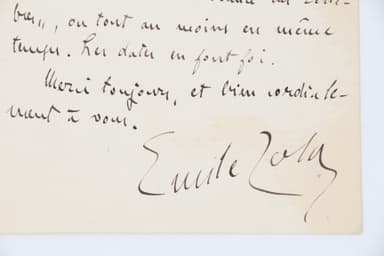 bes", ou tout au moins en même
temps. Les dates en font foi.
Merci toujours, et bien cordiale-
ment à vous.
Emile Zola